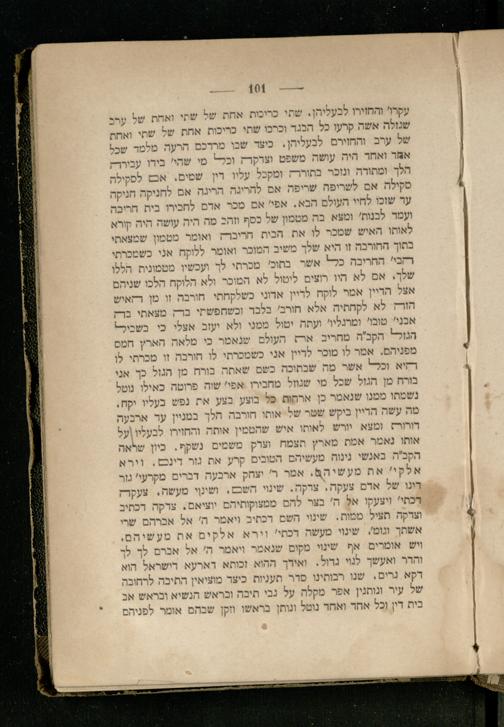 — 101 —
עקרו׳ והחזירו לבעליהן. שתי כריכות אחת של שתי ואחת של ערב
שגזלה אשה קרעו כל הבגד וכרכו שתי כריכות אחת של שתי ואחת
של ערב והחזירם לבעליהן. כיצד שבו מדרכם הרעה מלמד שכל
אחד ואחד היה עושה משפט וצדקה וכל מי שהי׳ בידו עבירה
הלך ומתודה ונזכר בתורה ומקבל עליו דין שמים. אם לסקילה
סקילה אם לשריפה שריפה אם להריגה הריגה אם לחניקה חניקה
עד שזכו לחיי העולם הבא. אפי׳ אם מכר אדם לחבירו בית חריבה
ועמד לבנות׳ ומצא בה מטמון של כסף וזהב מה היה עושה היה קורא
לאותו האיש שמכר לו את הבית חריבה ואומר מטמון שמצאתי
בתוך החורבה זו היא שלך משיב המוכר ואומר ללוקח אני כשמכרתי
החריבה כל אשר בתוכ׳ מכרתי לך ועכשיו מטמונית הללו
שלך. אם לא היו רוצים ליטול לא המוכר ולא הלוקח הלכו שניהם
אצל הדיין אמר לוקח לדיין אדוני כשלקחתי חורבה זו מן האיש
הזה לא לקחתיה אלא חורב׳ בלבד וכשחפשתי בה מצאתי בה
אבני׳ טובו׳ ומרגליו׳ ועתה יטול ממני ולא יעזב אצלי כי בשביל
הגזל הקב״ה מחריב את העולם שנאמר כי מלאה הארץ חמס
מפניהם. אמר לו מוכר לדיין אני כשמכרתי לו חורבה זו מכרתי לו
היא וכל אשר מה שבתוכה כשם שאתה בורח מן הגזל כך אני
בורח מן הגזל שכל מי שגוזל מחבירו אפי׳ שוה פרוטה כאילו נוטל
נשמתו ממנו שנאמר כן ארחות כל בוצע בצע את נפש בעליו יקח.
מה עשה הדיין ביקש שטר של אותו חורבה הלך במניין עד ארבעה
דורות ומצא יורש לאותו איש שהטמין אותה והחזירו לבעליו על
אותו נאמר אמת מארץ תצמח וצדק משמים נשקף. כיון שראה
הקב״ה באנשי נינוה מעשיהם הטובים קרע את גזר דינם. וירא
אלקי׳ את מעשיהם. אמר ר׳ יצחק ארבעה דברים מקרעי׳ גזר
דינו של אדם צעקה, צדקה, שינוי השם, ושינוי מעשה. צעקה
דכתי׳ ויצעקו אל ה׳ בצר להם ממצוקותיהם יוציאם. צדקה דכתיב
וצדקה תציל ממות. שינוי השם דכתיב ויאמר ה׳ אל אברהם שרי
אשתך וגומ׳. שינוי מעשה דכתי׳ וירא אלקים את מעשיהם.
ויש אומרים אף שינוי מקום שנאמר ויאמר ה׳ אל אברם לך לך
והדר ואעשך לגוי גדול. ואידך ההוא זכותא דארעא דישראל הוא
דקא גרים. שנו רבותינו סדר תעניות כיצד מוציאין התיבה לרחובה
של עיר ונותנין אפר מקלה על גבי תיבה ובראש הנשיא ובראש אב
בית דין וכל אחד ואחד נוטל ונותן בראשו וזקן שבהם אומר לפניהם